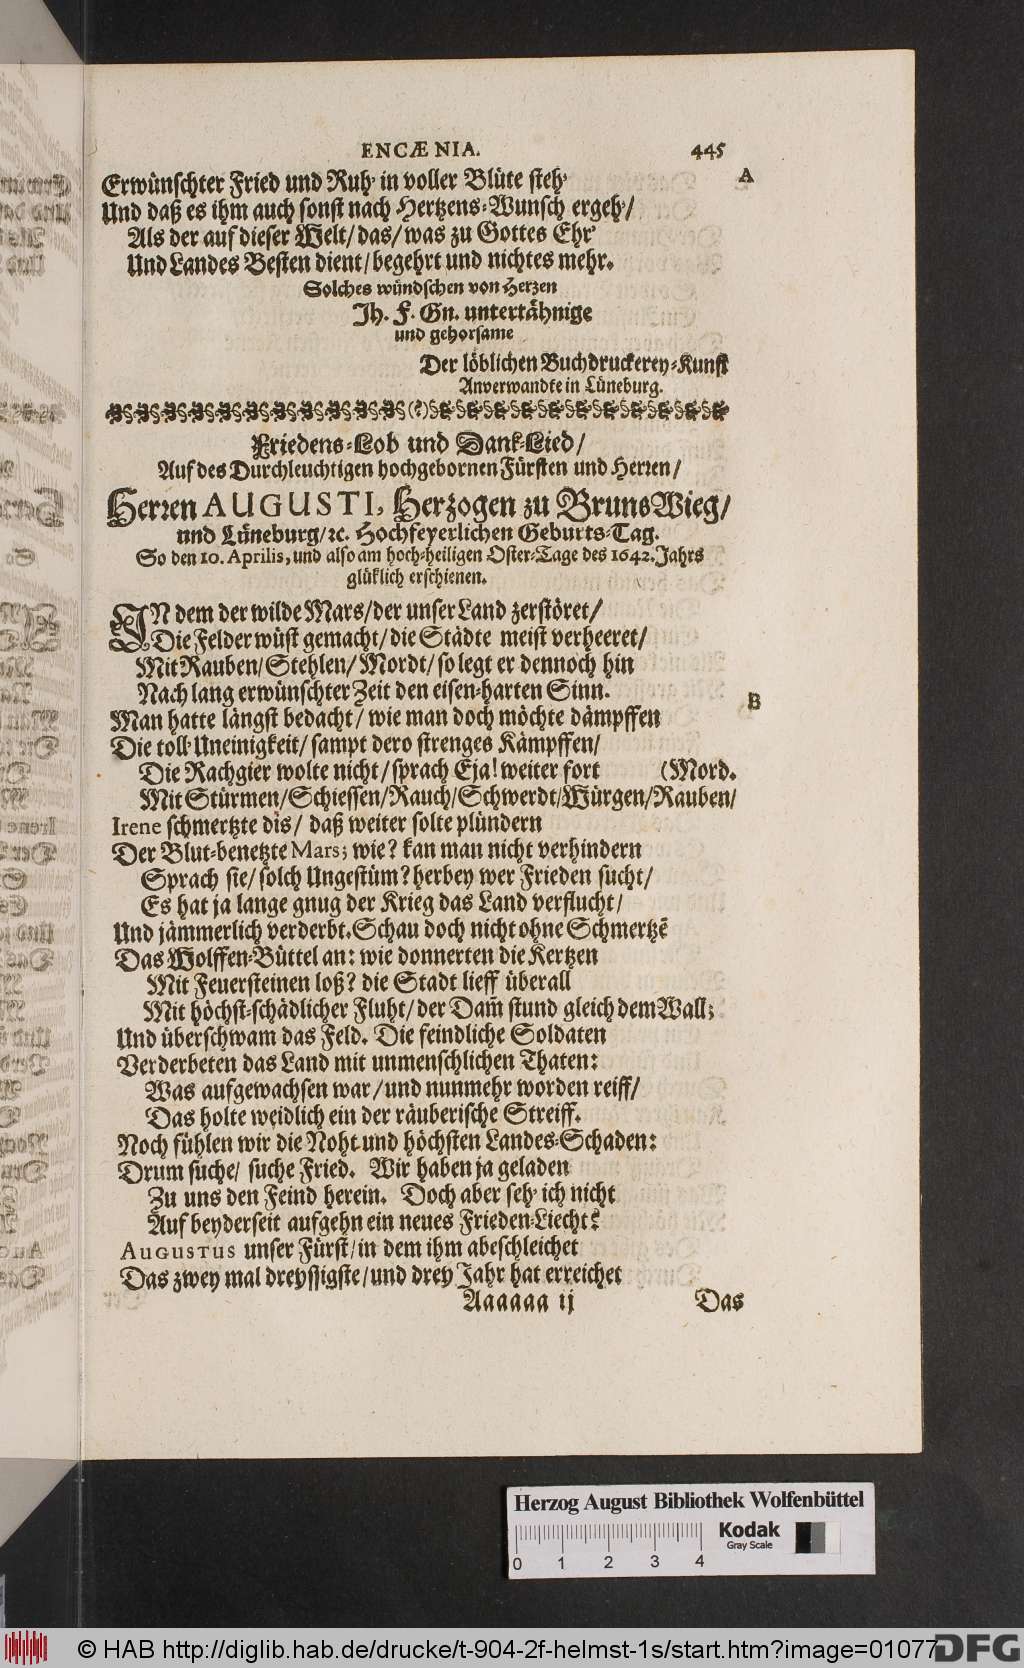 ENCÆNIA. 445
Erwünschter Fried und Ruh' in voller Blüte steh' A
Und daß es ihm auch sonst nach Hertzens-Wunsch ergeh'/
Als der auf dieser Welt/ das/ was zu Gottes Ehr'
Und Landes Besten dient/ begehrt und nichtes mehr.
Solches wündschen von Herzen
Ih. F. Gn. untertähnige
und gehorsame
Der löblichen Buchdruckerey-Kunst
Anverwandte in Lüneburg.
Friedens-Lob und Dank-Lied/
Auf des Durchleuchtigen hochgebornen Fürsten und Herren/
Herren AUGUSTI, Herzogen zu BrunsWieg/
und Lüneburg/ ꝛc. Hochfeyerlichen Geburts-Tag.
So den 10. Aprilis, und also am hoch-heiligen Oster-Tage des 1642. Jahrs
glüklich erschienen.
IN dem der wilde Mars/ der unser Land zerstöret/
Die Felder wüst gemacht/ die Städte meist verheeret/
Mit Rauben/ Stehlen/ Mordt/ so legt er dennoch hin
Nach lang erwünschter Zeit den eisen-harten Sinn.
B
Man hatte längst bedacht/ wie man doch möchte dämpffen
Die toll' Uneinigkeit/ sampt dero strenges Kämpffen/
Die Rachgier wolte nicht/ sprach Eja! weiter fort (Mord.
Mit Stürmen/ Schiessen/ Rauch/ Schwerdt/ Würgen/ Rauben/
Irene schmertzte dis/ daß weiter solte plündern
Der Blut-benetzte Mars; wie? kan man nicht verhindern
Sprach sie/ solch Ungestüm? herbey wer Frieden sucht/
Es hat ja lange gnug der Krieg das Land verflucht/
Und jämmerlich verderbt. Schau doch nicht ohne Schmertzē
Das Wolffen-Büttel an: wie donnerten die Kertzen
Mit Feuersteinen loß? die Stadt lieff überall
Mit höchst-schädlicher Fluht/ der Dam̄ stund gleich dem Wall;
Und überschwam das Feld. Die feindliche Soldaten
Verderbeten das Land mit unmenschlichen Thaten:
Was aufgewachsen war/ und nunmehr worden reiff/
Das holte weidlich ein der räuberische Streiff.
Noch fühlen wir die Noht und höchsten Landes-Schaden:
Drum suche/ suche Fried. Wir haben ja geladen
Zu uns den Feind herein. Doch aber seh' ich nicht
Auf beyderseit aufgehn ein neues Frieden-Liecht?
AUGUSTUS unser Fürst/ in dem ihm abeschleichet
Das zwey mal dreyssigste/ und drey Jahr hat erreichet
Aaaaaa ij Das
Herzog August Bibliothek Wolfenbüttel
0 1 2 3 4
Kodak
Gray Scale
© HAB http://diglib.hab.de/drucke/t-904-2f-helmst-1s/start.htm?image=01077
DFG